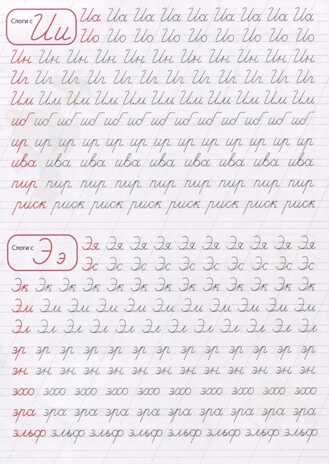 Слоги с Ии Иа Иа Иа Иа Иа Иа Иа Иа Иа
Ио Ио Ио Ио Ио Ио Ио Ио Ио
Ин Ин Ин Ин Ин Ин Ин Ин Ин Ин Ин Ин
Иг Иг Иг Иг Иг Иг Иг Иг Иг Иг Иг Иг
Им Им Им Им Им Им Им Им Им Им Им
иб иб иб иб иб иб иб иб иб иб иб иб
ир ир ир ир ир ир ир ир ир ир ир ир
ива ива ива ива ива ива ива ива ива
пир пир пир пир пир пир пир пир пир
риск риск риск риск риск риск риск риск
Слоги с Ээ Эя Эя Эя Эя Эя Эя Эя Эя Эя
Эс Эс Эс Эс Эс Эс Эс Эс Эс
Эк Эк Эк Эк Эк Эк Эк Эк Эк Эк Эк Эк
Эм Эм Эм Эм Эм Эм Эм Эм Эм Эм Эм
Эл Эл Эл Эл Эл Эл Эл Эл Эл Эл Эл Эл
эр эр эр эр эр эр эр эр эр эр эр эр
эн эн эн эн эн эн эн эн эн эн эн эн
эхо эхо эхо эхо эхо эхо эхо эхо эхо
эра эра эра эра эра эра эра эра эра
эльф эльф эльф эльф эльф эльф эльф эльф